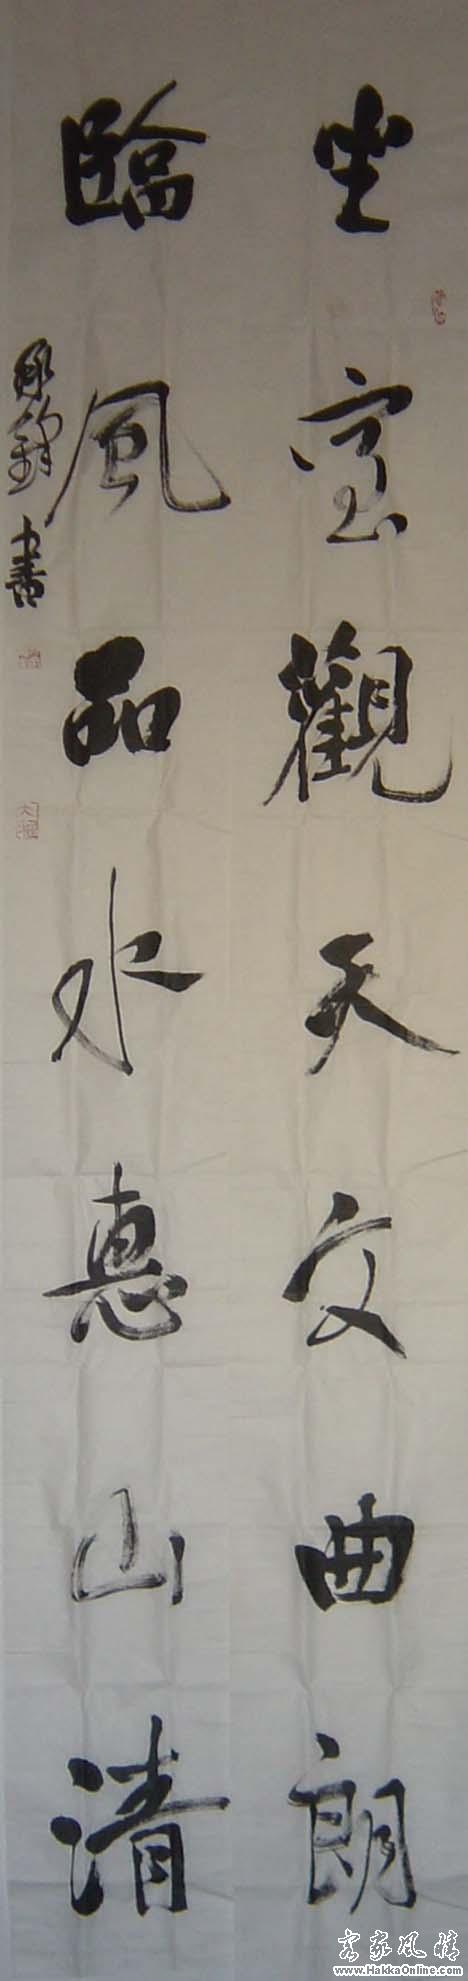 坐室觀天文曲朗
臨風品水惠山清
書
客家风情
www.HakkaOnline.com